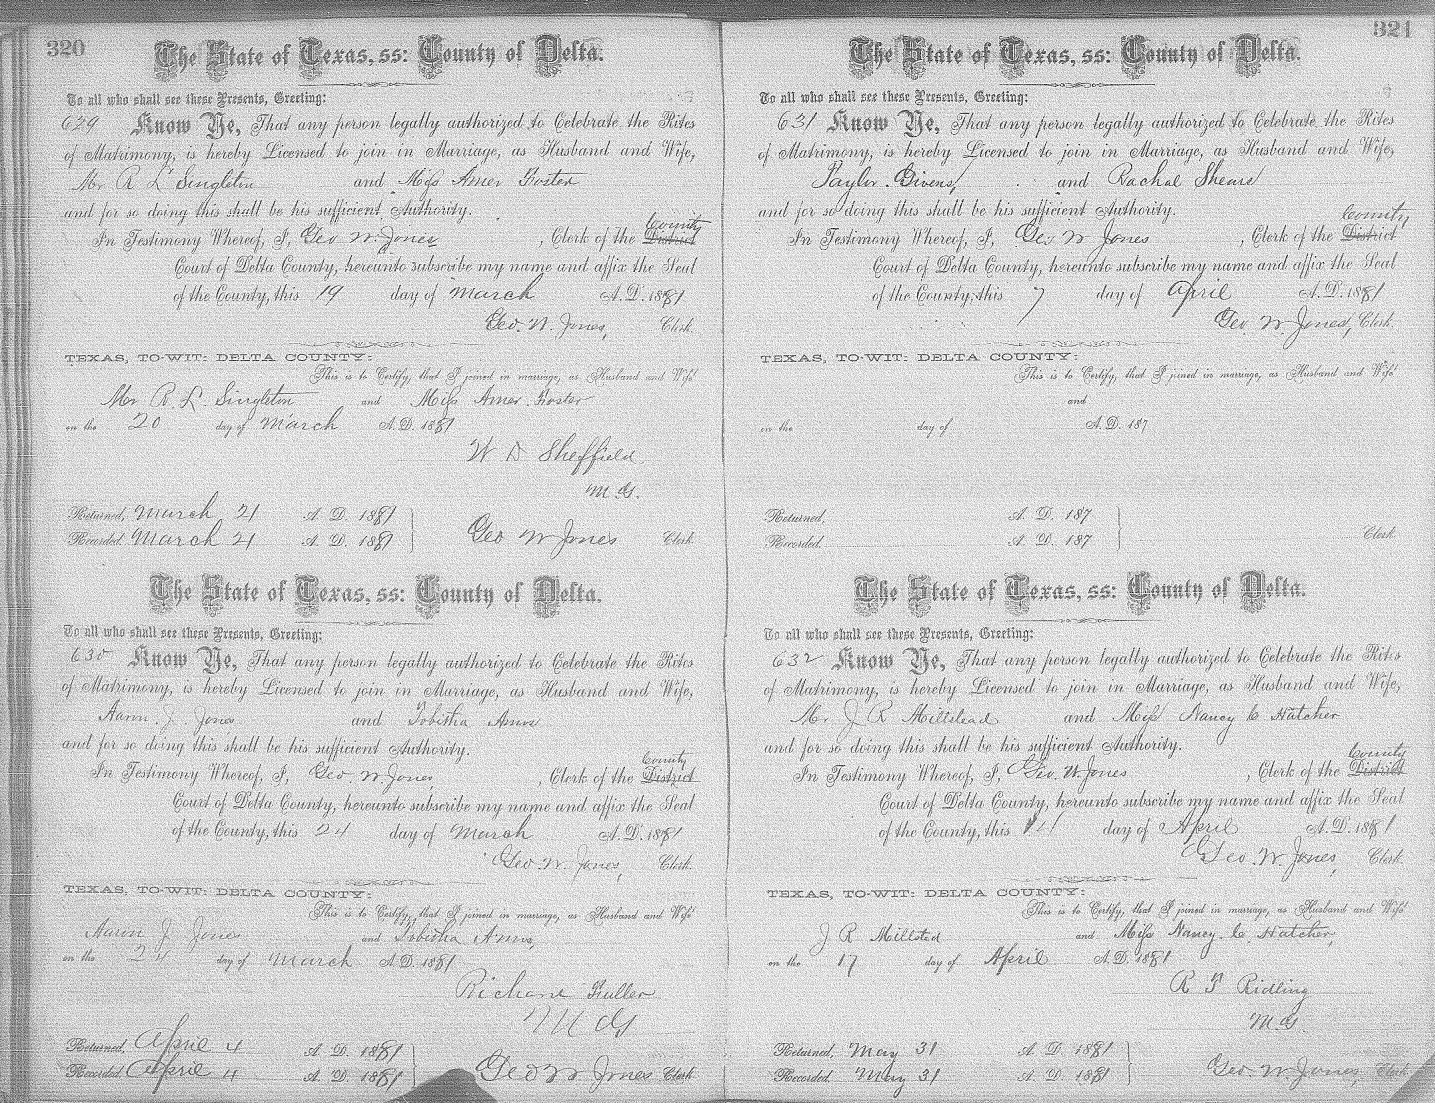 320
The State of Texas, ss: County of Delta.
To all who shall see these Presents, Greeting:
629 Know Ye, That any person legally authorized to Celebrate the Rites
of Matrimony, is hereby Licensed to join in Marriage, as Husband and Wife,
Mr R L Singleton and Miss Amer Foster
and for so doing this shall be his sufficient Authority.
County
In Testimony Whereof, I, Geo W. Jones, Clerk of the District
Court of Delta County, hereunto subscribe my name and affix the Seal
of the County, this 19 day of March A.D. 1881
Geo. W. Jones, Clerk.
TEXAS, TO-WIT: DELTA COUNTY:
This is to Certify, that I joined in marriage, as Husband and Wife
Mr R. L. Singleton and Miss Amer Foster
on the 20 day of March A.D. 1881
W D Sheffield
M.G.
Returned, March 21 A.D. 1881
Recorded. March 21 A.D. 1881 Geo W Jones Clerk
The State of Texas, ss: County of Delta.
To all who shall see these Presents, Greeting:
630 Know Ye, That any person legally authorized to Celebrate the Rites
of Matrimony, is hereby Licensed to join in Marriage, as Husband and Wife,
Aaron J. Jones and Tobitha Amos
and for so doing this shall be his sufficient Authority.
County
In Testimony Whereof, I, Geo. W Jones, Clerk of the District
Court of Delta County, hereunto subscribe my name and affix the Seal
of the County, this 24 day of March A.D. 1881
Geo. W. Jones, Clerk.
TEXAS, TO-WIT: DELTA COUNTY:
This is to Certify, that I joined in marriage, as Husband and Wife
Aaron J Jones and Tobitha Amos,
on the 24 day of March A.D. 1881
Richard Fuller
M G
Returned, April 4 A.D. 1881
Recorded April 4 A.D. 1881 Geo W Jones Clerk
321
The State of Texas, ss: County of Delta.
To all who shall see these Presents, Greeting:
631 Know Ye, That any person legally authorized to Celebrate the Rites
of Matrimony, is hereby Licensed to join in Marriage, as Husband and Wife,
Taylor Givens, and Rachal Shears
and for so doing this shall be his sufficient Authority.
County
In Testimony Whereof, I, Geo W Jones, Clerk of the District
Court of Delta County, hereunto subscribe my name and affix the Seal
of the County, this 7 day of April A.D. 1881
Geo W. Jones, Clerk.
TEXAS, TO-WIT: DELTA COUNTY:
This is to Certify, that I joined in marriage, as Husband and Wife
and
on the day of A.D. 187
Returned, A.D. 187
Recorded. A.D. 187 Clerk
The State of Texas, ss: County of Delta.
To all who shall see these Presents, Greeting:
632 Know Ye, That any person legally authorized to Celebrate the Rites
of Matrimony, is hereby Licensed to join in Marriage, as Husband and Wife,
Mr J R Millstead and Miss Nancy C Hatcher
and for so doing this shall be his sufficient Authority.
County
In Testimony Whereof, I, Geo. W. Jones, Clerk of the District
Court of Delta County, hereunto subscribe my name and affix the Seal
of the County, this 14 day of April A.D. 1881
Geo. W. Jones, Clerk.
TEXAS, TO-WIT: DELTA COUNTY:
This is to Certify, that I joined in marriage, as Husband and Wife
J R Millsted and Miss Nancy C. Hatcher,
on the 17 day of April A.D. 1881
R P Ridling
M.G.
Returned, May 31 A.D. 1881
Recorded. May 31 A.D. 1881 Geo. W. Jones, Clerk